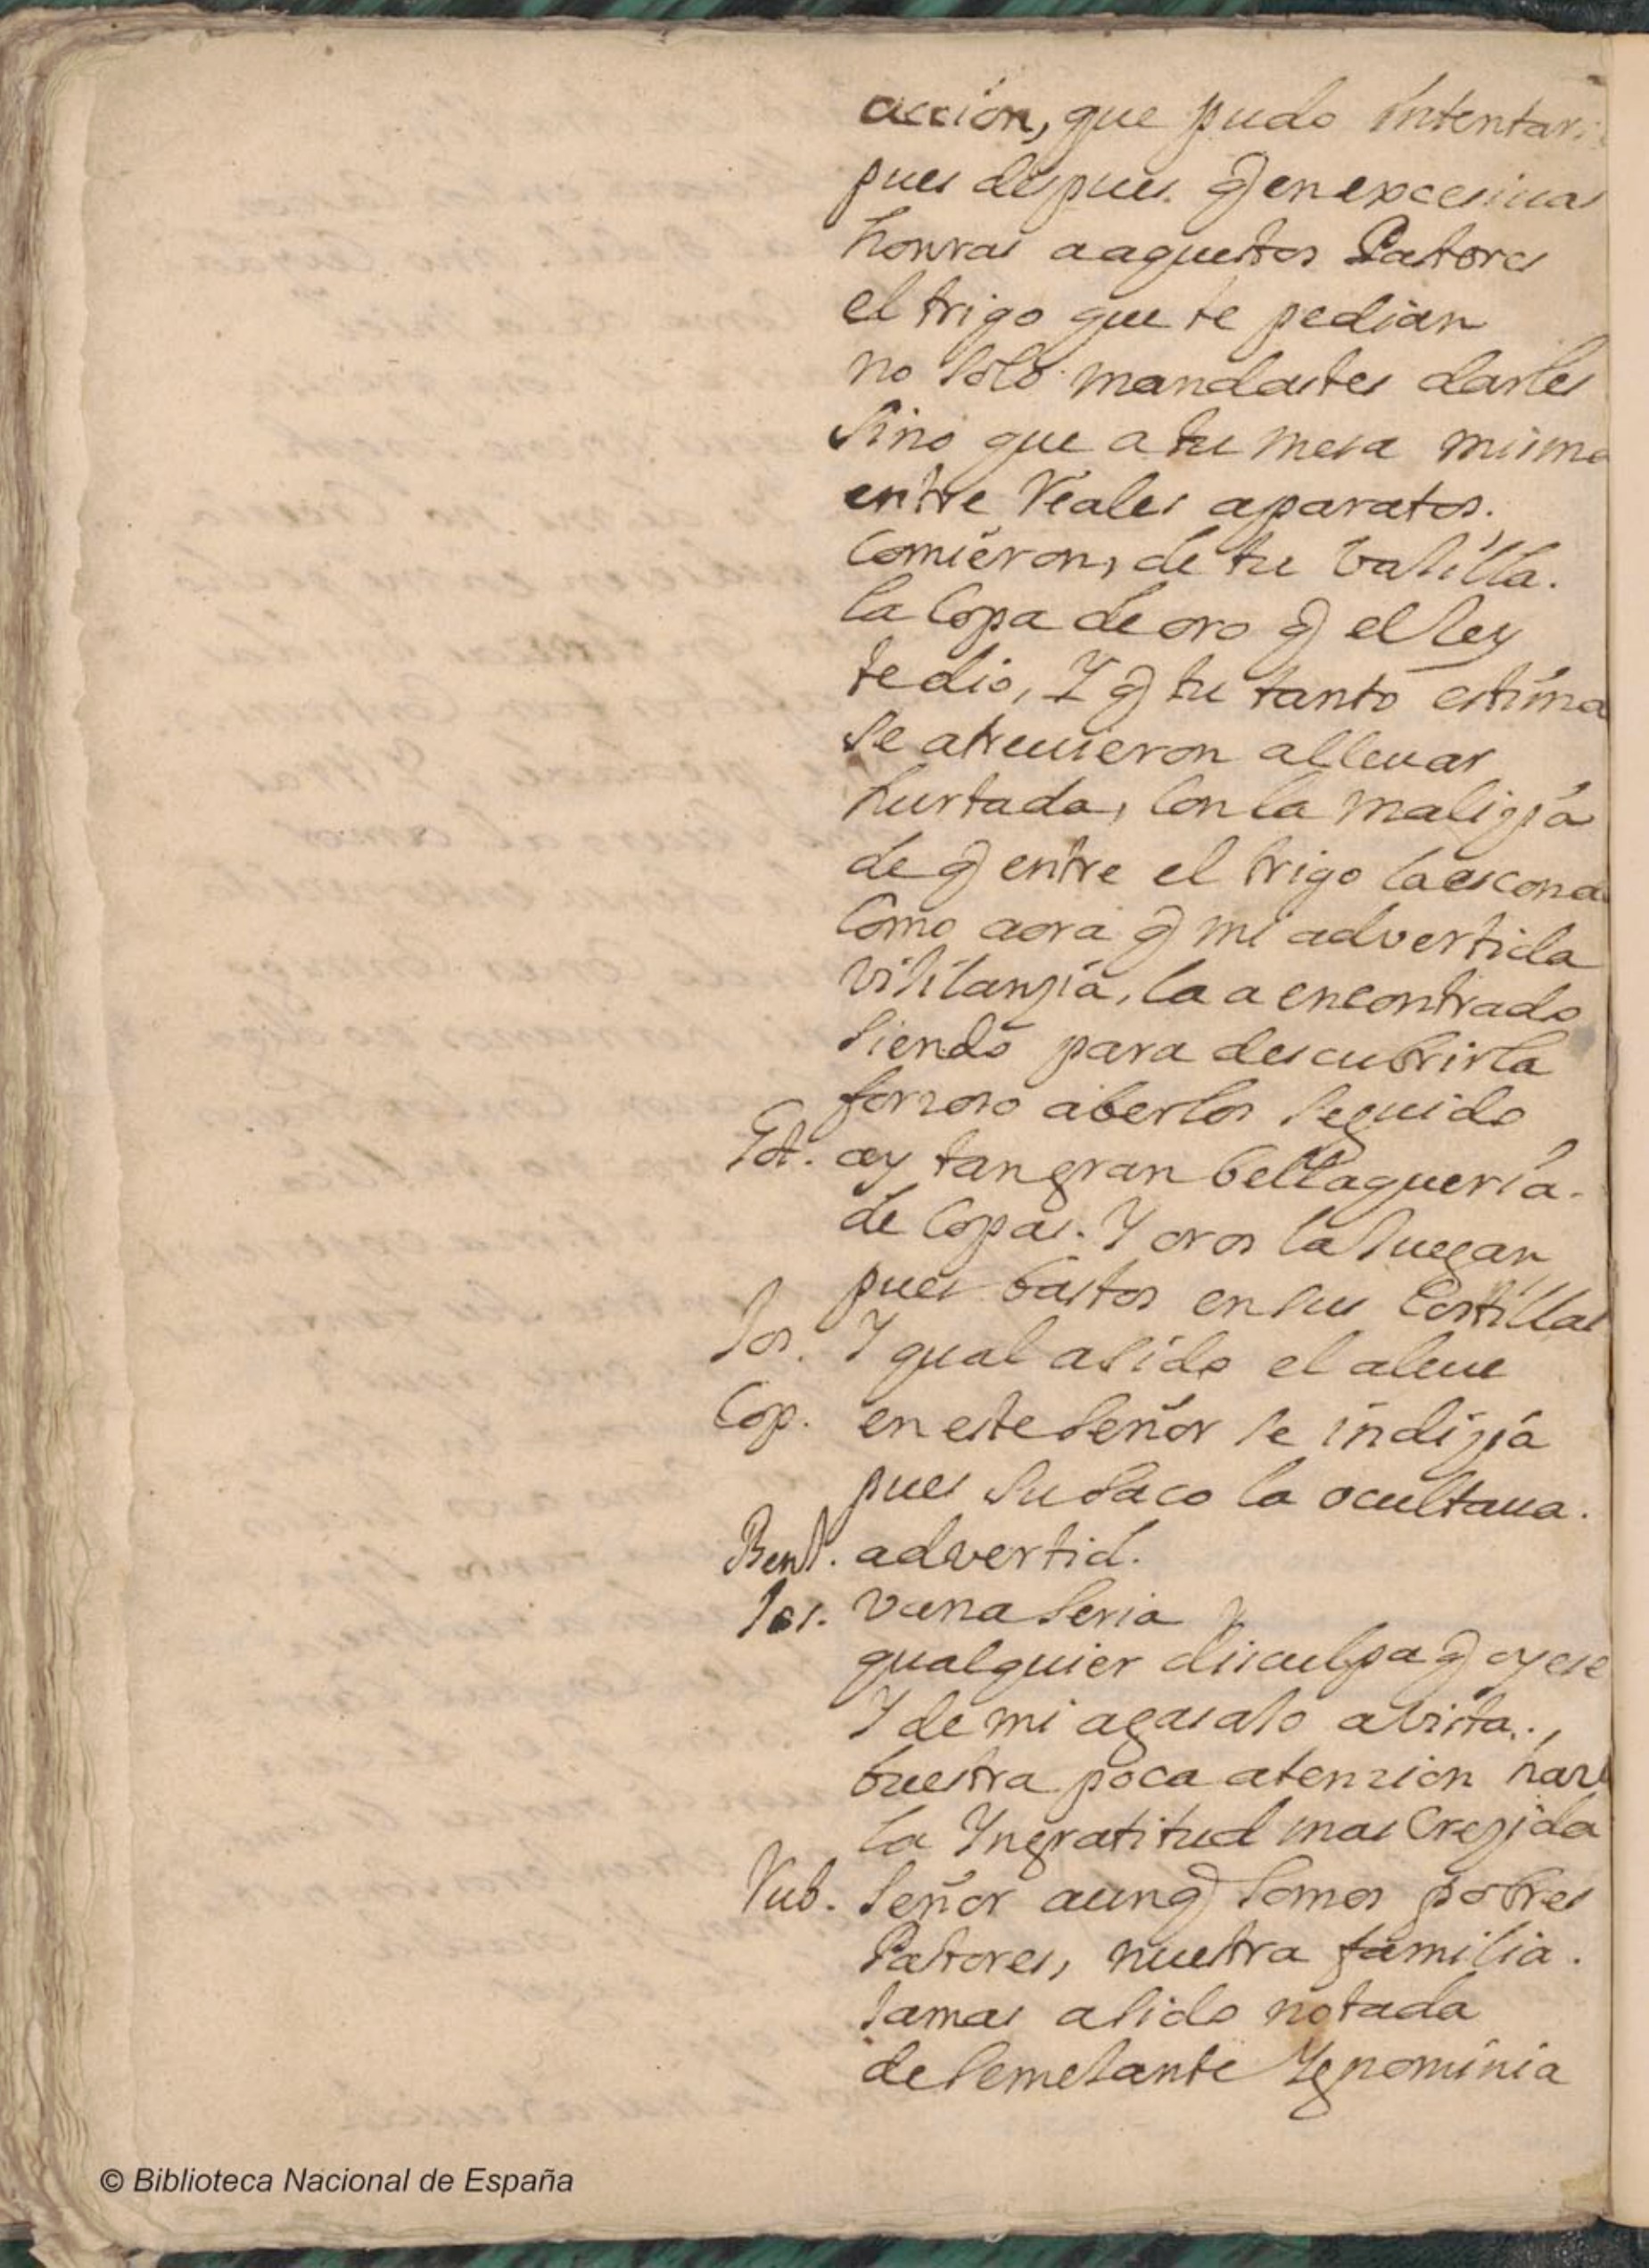 accion, que pudo intentar
pues despues q en excesiuas
honrras a aquestos Pastores
el trigo que te pedian
no solo mandastes darles
sino que a tu mesa misma
entre Reales aparatos.
comieron, de tu bajilla.
la Copa de oro q el Rey
te dio, Y q tu tanto estima
se atreuieron alleuar
hurtada, Con la malizia
de q entre el trigo la escond
Como aora q mi advertida
vijilanzia, la a encontrado
siendo para descubrirla
forzoso aberlos seguido
ay tan gran bellaqueria.
de Copas. Y oros la Juegan
pues bastos en sus Costillas
Jos. Y qual asido el aleue
Cop. en este señor se indizia
pues su saco la ocultaua.
Benj. advertid.
Jos. vana seria
qualquier disculpa q oyese
Y de mi agasajo a vista.
buestra poca atenzion haze
la Yngratitud mas Crezida
Rub. señor aunq somos pobres
Pastores, nuestra familia.
Jamas asido notada
de semejante Ygnominia
© Biblioteca Nacional de España